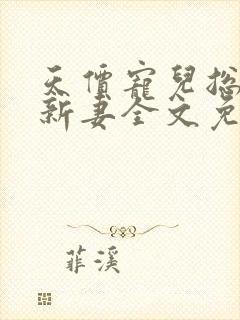 天價寵兒總
新妻全文免
菲溪